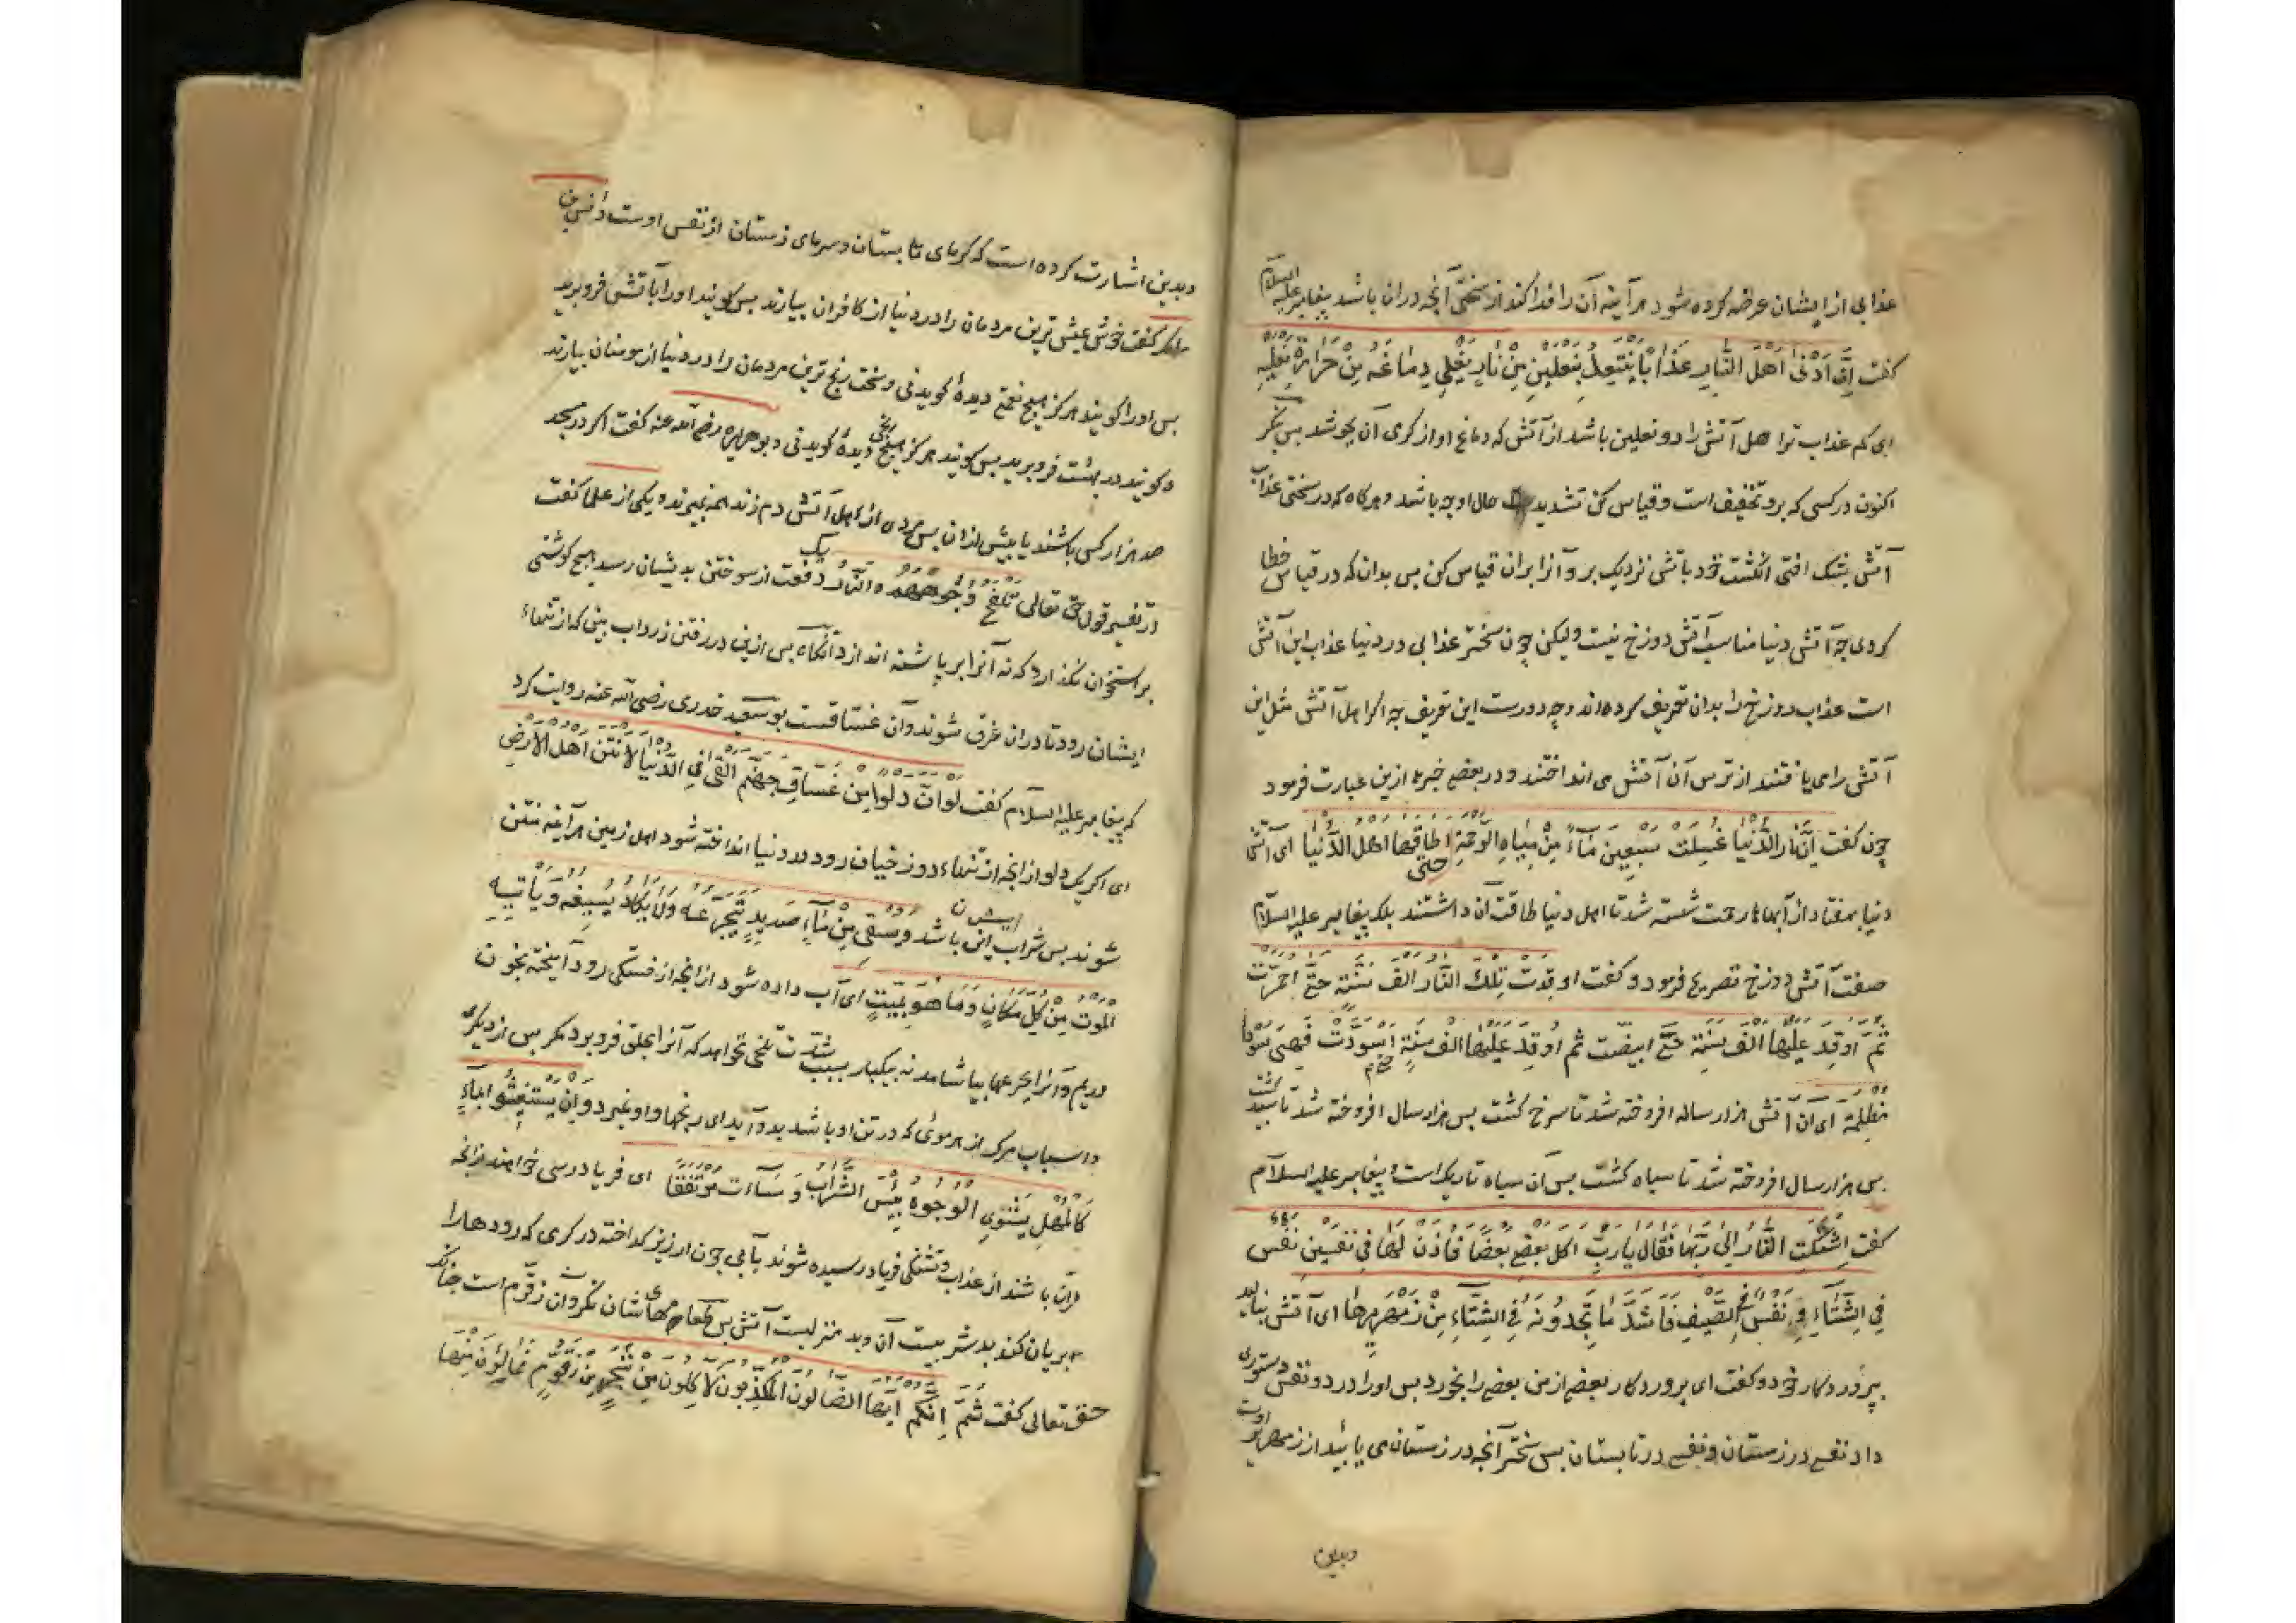 عذابی از ایشان عرضه کرده شود هر آینه آن را فدا کند از سختی آنچه در آن باشد پیغامبر علیه السلام
گفت اِنَّ اَدْنٰی اَهْلَ النَّارِ عَذَاباً یَنْتَعِلُ بِنَعْلَیْنِ مِنْ نَارٍ یَغْلِی دِمَاغُهُ مِنْ حَرَارَةِ نَعْلَیْهِ
ای کم عذاب تر اهل آتش را دو نعلین باشد از آتش که دماغ او از گرمی آن بجوشد پس بنگر
اکنون در کسی که برو تخفیف است و قیاس کن تشدید حال او چه باشد و هرگاه که در سختی عذاب
آتش بشک افتی انگشت خود باتش نزدیک بر و آنرا بران قیاس کن پس بدان که در قیاس خطا
کردی چه آتش دنیا مناسب آتش دوزخ نیست ولیکن چون سختر عذابی در دنیا عذاب این آتش
است عذاب دوزخ را بدان تعریف کرده اند و چه دورست این تعریف چه اگر اهل آتش مثل این
آتش را می یافتند از ترس آن آتش می انداختند و در بعضی خبرها ازین عبارت فرمود
چون گفت اِنَّ نَارَ الدُّنْیَا غُسِلَتْ سَبْعِینَ مَآءً مِنْ مِیَاهِ الرَّحْمَةِ حتی اَطَاقَهَا اَهْلُ الدُّنْیَا ای آتش
دنیا بهفتاد از آبهاء رحمت شسته شد تا اهل دنیا طاقت آن داشتند بلکه پیغامبر علیه السلام
صفت آتش دوزخ تصریح فرمود و گفت اوقدت تِلْكَ النَّار اَلْفَ سَنَةٍ حَتّٰی احمرّت
ثُمَّ اُوقِدَ عَلَیْهَا اَلْفَ سَنَةٍ حَتّٰی ابیضّت ثُمّ اُوقِدَ عَلَیْهَا اَلْفَ سَنَةٍ حتی اسْوَدَّتْ فَهِیَ سَوْدا
مُظْلِمَة ای آن آتش هزار ساله افروخته شد تا سرخ گشت پس هزار سال افروخته شد تا سپید گشت
پس هزار سال افروخته شد تا سیاه گشت پس آن سیاه تاریک است و پیغامبر علیه السلام
گفت اِشْتَکَتِ النَّارُ اِلٰی رَبِّهَا فَقَالَ یَارَبِّ اَکَلَ بَعْضِی بَعْضًا فَاَذِنَ لَهَا فِی نَفَسَیْنِ نَفَسٍ
فِی الشِّتَآءِ وَ نَفَسٍ فِی الصَّیْفِ فَاَشَدَّ مَا تَجِدُونَهُ فِی الشِّتَآءِ مِنْ زَمْهَرِیرِهَا ای آتش بنالید
بپروردگار خود و گفت ای پروردگار بعضی از من بعضی را بخورد پس او را در دو نفس دستوری
داد نفسی در زمستان و نفسی در تابستان پس سختر آنچه در زمستان می یابید از زمهریر اوست
وبدین
وبدین اشارت کرده است که گرمای تابستان و سرمای زمستان از نفس اوست و أنس بن
مالک گفت خوش عیش ترین مردمان را در دنیا از کافران بیارند پس گویند او را باتش فرو برید
پس او را گویند هرگز هیچ نعمتی دیدهٔ گوید نی و سخت رنج ترین مردمان را در دنیا از مومنان بیارند
و گویند در بهشت فرو برید پس گویند هرگز هیچ رنجی دیدهٔ گوید نی و بوهریره رضی الله عنه گفت اگر در مسجد
صد هزار کس باشند یا بیش از آن پس مردی از اهل آتش دم زند همه بمیرند و یکی از علما گفت
در تفسیر قول حق تعالی تَلْفَحُ وُجُوهَهُمُ النَّارُ یک دفعت از سوختن بدیشان رسد هیچ گوشتی
بر استخوان نگذارد که نه آنرا بر پاشنه اندازد آنگاه پس ازین در رفتن زرداب بین که از تنهاء
ایشان رود تا در آن غرق شوند و آن غساقست بوسعید خدری رضی الله عنه روایت کرد
که پیغامبر علیه السلام گفت لَوْ اَنَّ دَلْوًا مِنْ غَسَّاقِ جَهَنَّمَ اُلْقِیَ فِی الدُّنْیَا لَاَنْتَنَ اَهْلَ الْاَرْضِ
ای اگر یک دلو از انچه از تنهاء دوزخیان رود در دنیا انداخته شود اهل زمین هر آینه منتن
شوند پس شراب ایشان این باشد وَیُسْقٰی مِنْ مَآءٍ صَدِیدٍ یَتَجَرَّعُهُ وَلَا یَکَادُ یُسِیغُهُ وَیَأْتِیهِ
الْمَوْتُ مِنْ کُلِّ مَکَانٍ وَمَا هُوَ بِمَیِّتٍ ای آب داده شود از انچه از خستگی رود آمیخته بخون
و ریم و آنرا بجرعها بیاشامد نه بیکبار بسبب شدّت تلخی نخواهد که آنرا بحلق فرو برد مگر پس از دیگری
و اسباب مرگ از هر موئی که در تن او باشد بدو آید ای رنجها و او نمیرد وَاِنْ یَسْتَغِیثُوا بِمَآءٍ
کَالْمُهْلِ یَشْوِی الْوُجُوهَ بِئْسَ الشَّرَابُ وَسَآءَت مُرْتَفَقًا ای فریادرسی خواهند از انچه
در آن باشند از عذاب و تشنگی فریاد رسیده شوند بآبی چون ارزیز گداخته در گرمی که رودها را
بریان کند بد شربیست آن و بد منزلیست آتش پس طعامهای شان نگر و آن زقّوم است چنانکه
حق تعالی گفت ثُمَّ اِنَّکُمْ اَیُّهَا الضَّآلُّونَ الْمُکَذِّبُونَ لَاٰکِلُونَ مِنْ شَجَرٍ مِنْ زَقُّومٍ فَمَالِئُونَ مِنْهَا